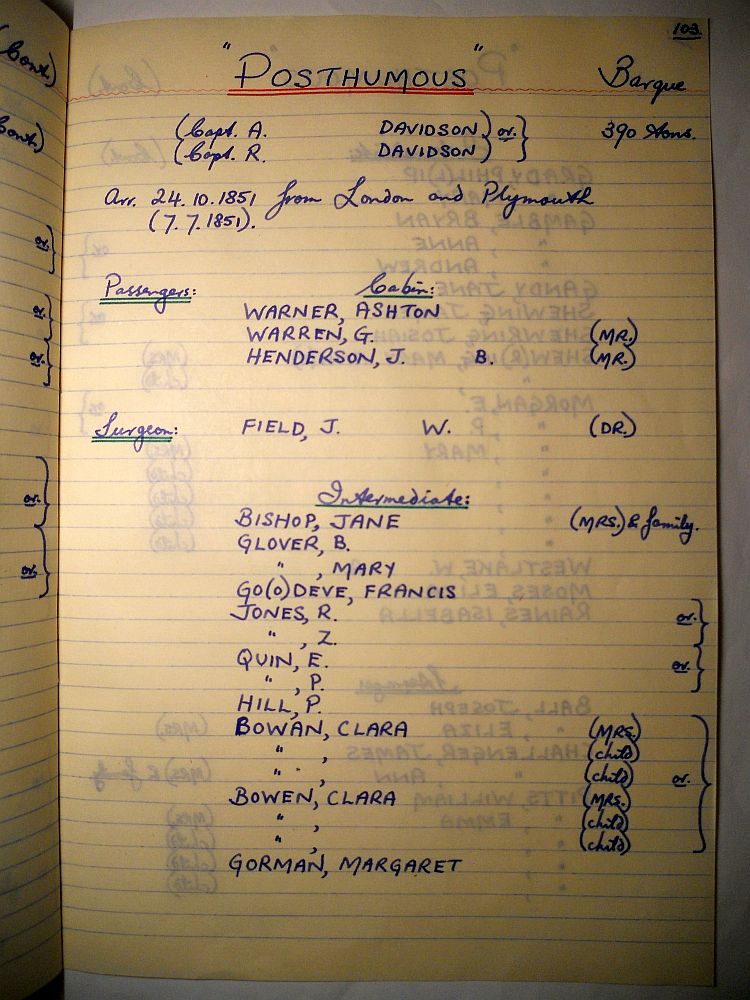 103.
"POSTHUMOUS" Barque
(Capt. A. DAVIDSON) or. } 390 tons.
(Capt. R. DAVIDSON)
Arr. 24.10.1851 from London and Plymouth
(7.7.1851).
Passengers: Cabin:
WARNER, ASHTON
WARREN, G. (MR.)
HENDERSON, J. B. (MR.)
Surgeon: FIELD, J. W. (DR.)
Intermediate:
BISHOP, JANE (MRS.) & family.
GLOVER, B.
" , MARY
GO(O)DEVE, FRANCIS
JONES, R. or. }
" , Z.
QUIN, E. or. }
" , P.
HILL, P.
BOWAN, CLARA (MRS.)
" , (child)
" , (child) or. }
BOWEN, CLARA (MRS.)
" , (child)
" , (child)
GORMAN, MARGARET
(Cont.)
(Cont.)
or. }
or. }
or. }
or. }
or. }